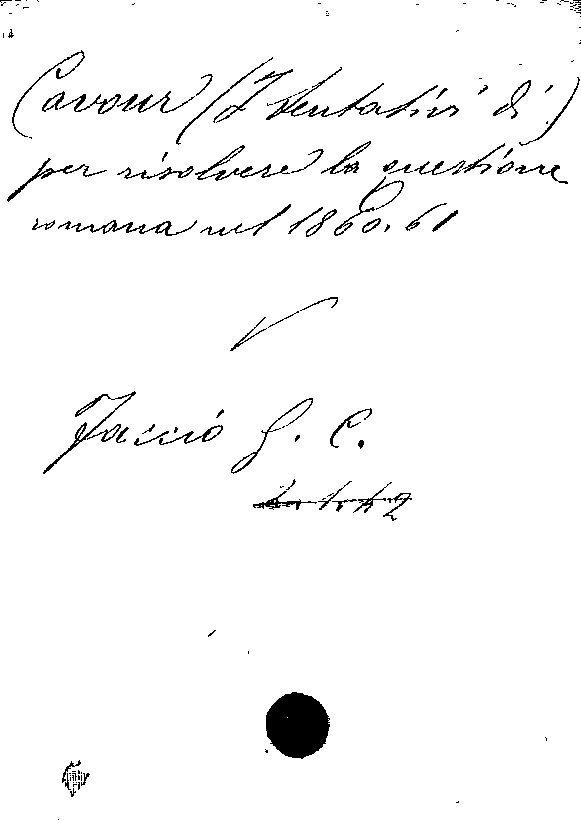 Cavour (I tentativi di)
per risolvere la questione
romana nel 1860.61
Facciò G. C.